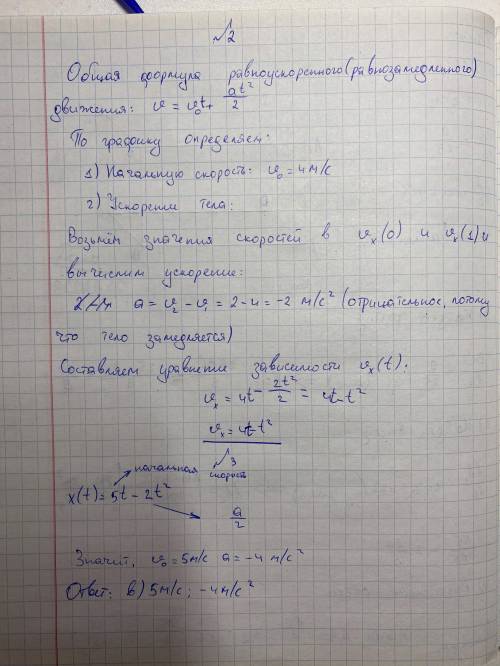 №2
Общая формула равноускоренного (равнозамедленного)
движения: v = v₀t + at²/2
По графику определяем:
1) Начальную скорость: v₀ = 4 м/с
2) Ускорение тела:
Возьмём значения скоростей в vₓ(0) и vₓ(1) и
вычислим ускорение:
a = v₂ - v₁ = 2 - 4 = -2 м/с² (отрицательное, потому
что тело замедляется)
Составляем уравнение зависимости vₓ(t):
vₓ = 4t - 2t²/2 = 4t - t²
vₓ = 4t - t²
№3
начальная скорость
x(t) = 5t - 2t²
a/2
Значит, v₀ = 5 м/с a = -4 м/с²
Ответ: в) 5 м/с; -4 м/с²